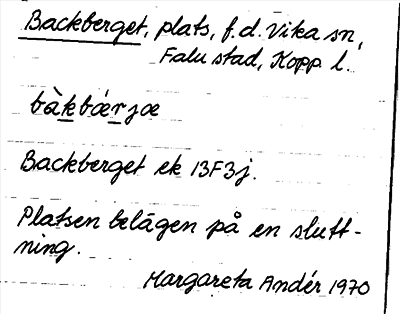 Backberget, plats, f.d. Vika sn,
Falu stad, Kopp l.
bàkbærjœ
Backberget ek 13F3j.
Platsen belägen på en slutt-
ning.
Margareta Andér 1970